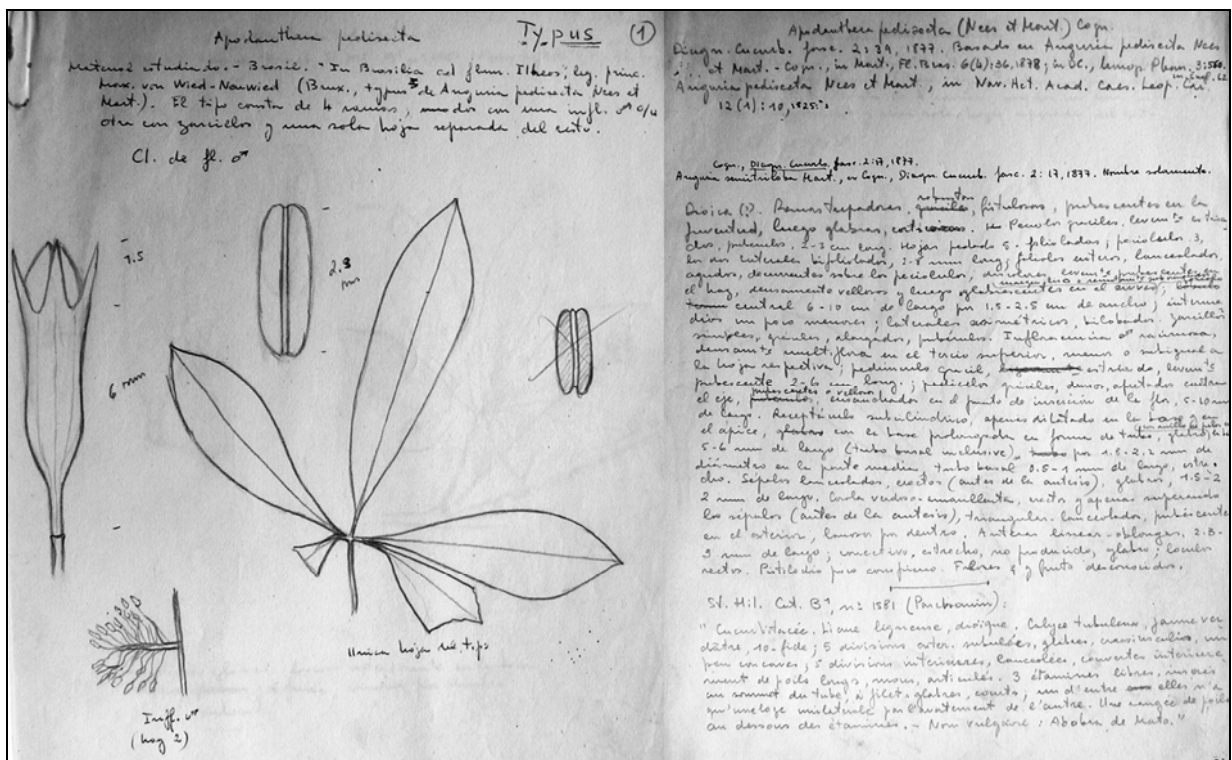 Apodanthera pedisecta Typus (1)
Material estudiado. - Brasil. "In Brasilia ad flum. Ilheos", leg. princ.
Max. von Wied-Neuwied (Brux., typus de Anguria pedisecta Nees et
Mart.). El tipo consta de 4 ramos, unidos con una infl. ♂ c/u
otra con zarcillos y una sola hoja separada del resto.
Cl. de fl. ♂
1.5
6 mm
2.3
mm
Unica hoja del tipo
Infl. ♂
(hoj 2)
Apodanthera pedisecta (Nees et Mart.) Cogn.
Diagn. Cucurb. fasc. 2:39, 1877. Basado en Anguria pedisecta Nees
et Mart. - Cogn., in Mart., Fl. Bras. 6(4):36, 1878; in DC., Monogr. Phan. 3:500.
Anguria pedisecta Nees et Mart., in Nov. Act. Acad. Caes. Leop. Car.
12(1):10, 1825.
Cogn., Diagn. Cucurb. fasc. 2:17, 1877.
Anguria semitriloba Mart., ex Cogn., Diagn. Cucurb. fasc. 2:17, 1877. Nombre solamente.
Dioica (?). Ramas trepadoras, robustas, fistulosas, pubescentes en la
juventud, luego glabras. Peciolos graciles, levem.te estria
dos, puberulos, 2-3 cm long. Hojas pedado 5-folioladas; peciolulos 3,
los dos laterales bifoliolados, 2-8 mm long; foliolos enteros, lanceolados,
agudos, decurrentes sobre los peciolulos, discolores, levem.te pubescentes en
el haz, densamente vellosos y luego glabrescentes en el envés;
central 6-10 cm de largo por 1.5-2.5 cm de ancho; interme
dios un poco menores; laterales asimétricos, bilobados. Zarcillos
simples, graciles, alargados, pubérulos. Inflorescencia ♂ racimosa,
densam.te multiflora en el tercio superior, menor o subigual a
la hoja respectiva; pedúnculo gracil, estriado, levem.te
pubescente, 2-6 cm long.; pedicelos graciles, densos, apretados contra
el eje, pubescentes o vellosos, ensanchados en el punto de inserción de la flor, 5-10 mm
de largo. Receptáculo subcilíndrico, apenas dilatado en la base y en
el ápice, con la base prolongada en forma de tubo, glabro,
5-6 mm de largo (tubo basal inclusive) por 1.5-2.2 mm de
diámetro en la parte media, tubo basal 0.5-1 mm de largo, estre
cho. Sépalos lanceolados, erectos (antes de la antesis), glabros, 1.5-2
2 mm de largo. Corola verdoso-amarillenta, erectos y apenas superando
los sépalos (antes de la antesis), triangular-lanceolados, pubescente
en el exterior, lanosos por dentro. Anteras linear-oblongas, 2.8-
3 mm de largo; conectivo, estrecho, no producido, glabro; lóculos
rectos. Pistilodio poco conspicuo. Flores ♀ y fruto desconocidos.
St. Hil. Cat. B¹, nº 1581
"Cucurbitacée. Liane ligneuse, dioïque. Calyce tubuleux, jaune ver
dâtre, 10-fide; 5 divisions exter. subulées, glabres, un
peu concaves; 5 divisions intérieures, lanceolées, couvertes intérieure
ment de poils longs, mous, articulés. 3 étamines libres, insérés
au sommet du tube, à filet glabres, courts, un d'entre elles n'a
qu'une loge unilatérale par l'avortement de l'autre. Une rangée de poils
au dessous des étamines. - Nom vulgaire: Abobra do Mato."